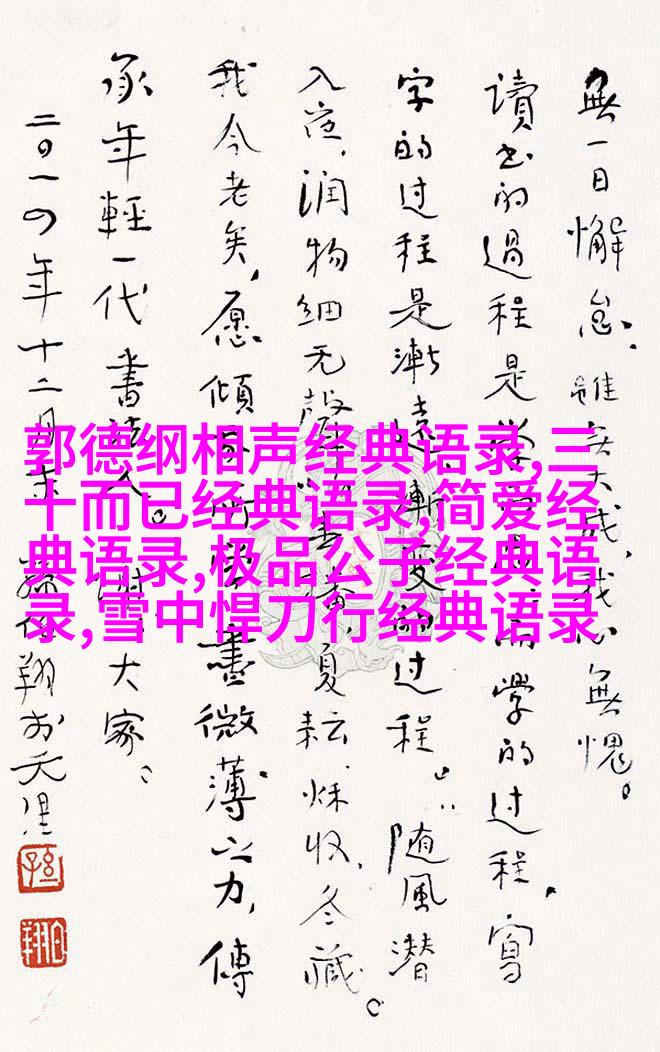 無一日懈怠，雖無大成，我心無愧。
讀书的過程是學而的过程，寫
字的过程是漸漸变的过程。随風潜
入夜，润物细无聲春夏耘、秌收、冬藏。
我今老矣，愿傾所學盡微薄之力，傳
承年輕一代書大家。
二〇一〇年十二月孫伯翔於天津
孫
伯翔
郭德纲相声经典语录,三
十而已经典语录,简爱经
典语录,极品公子经典语
录,雪中悍刀行经典语录